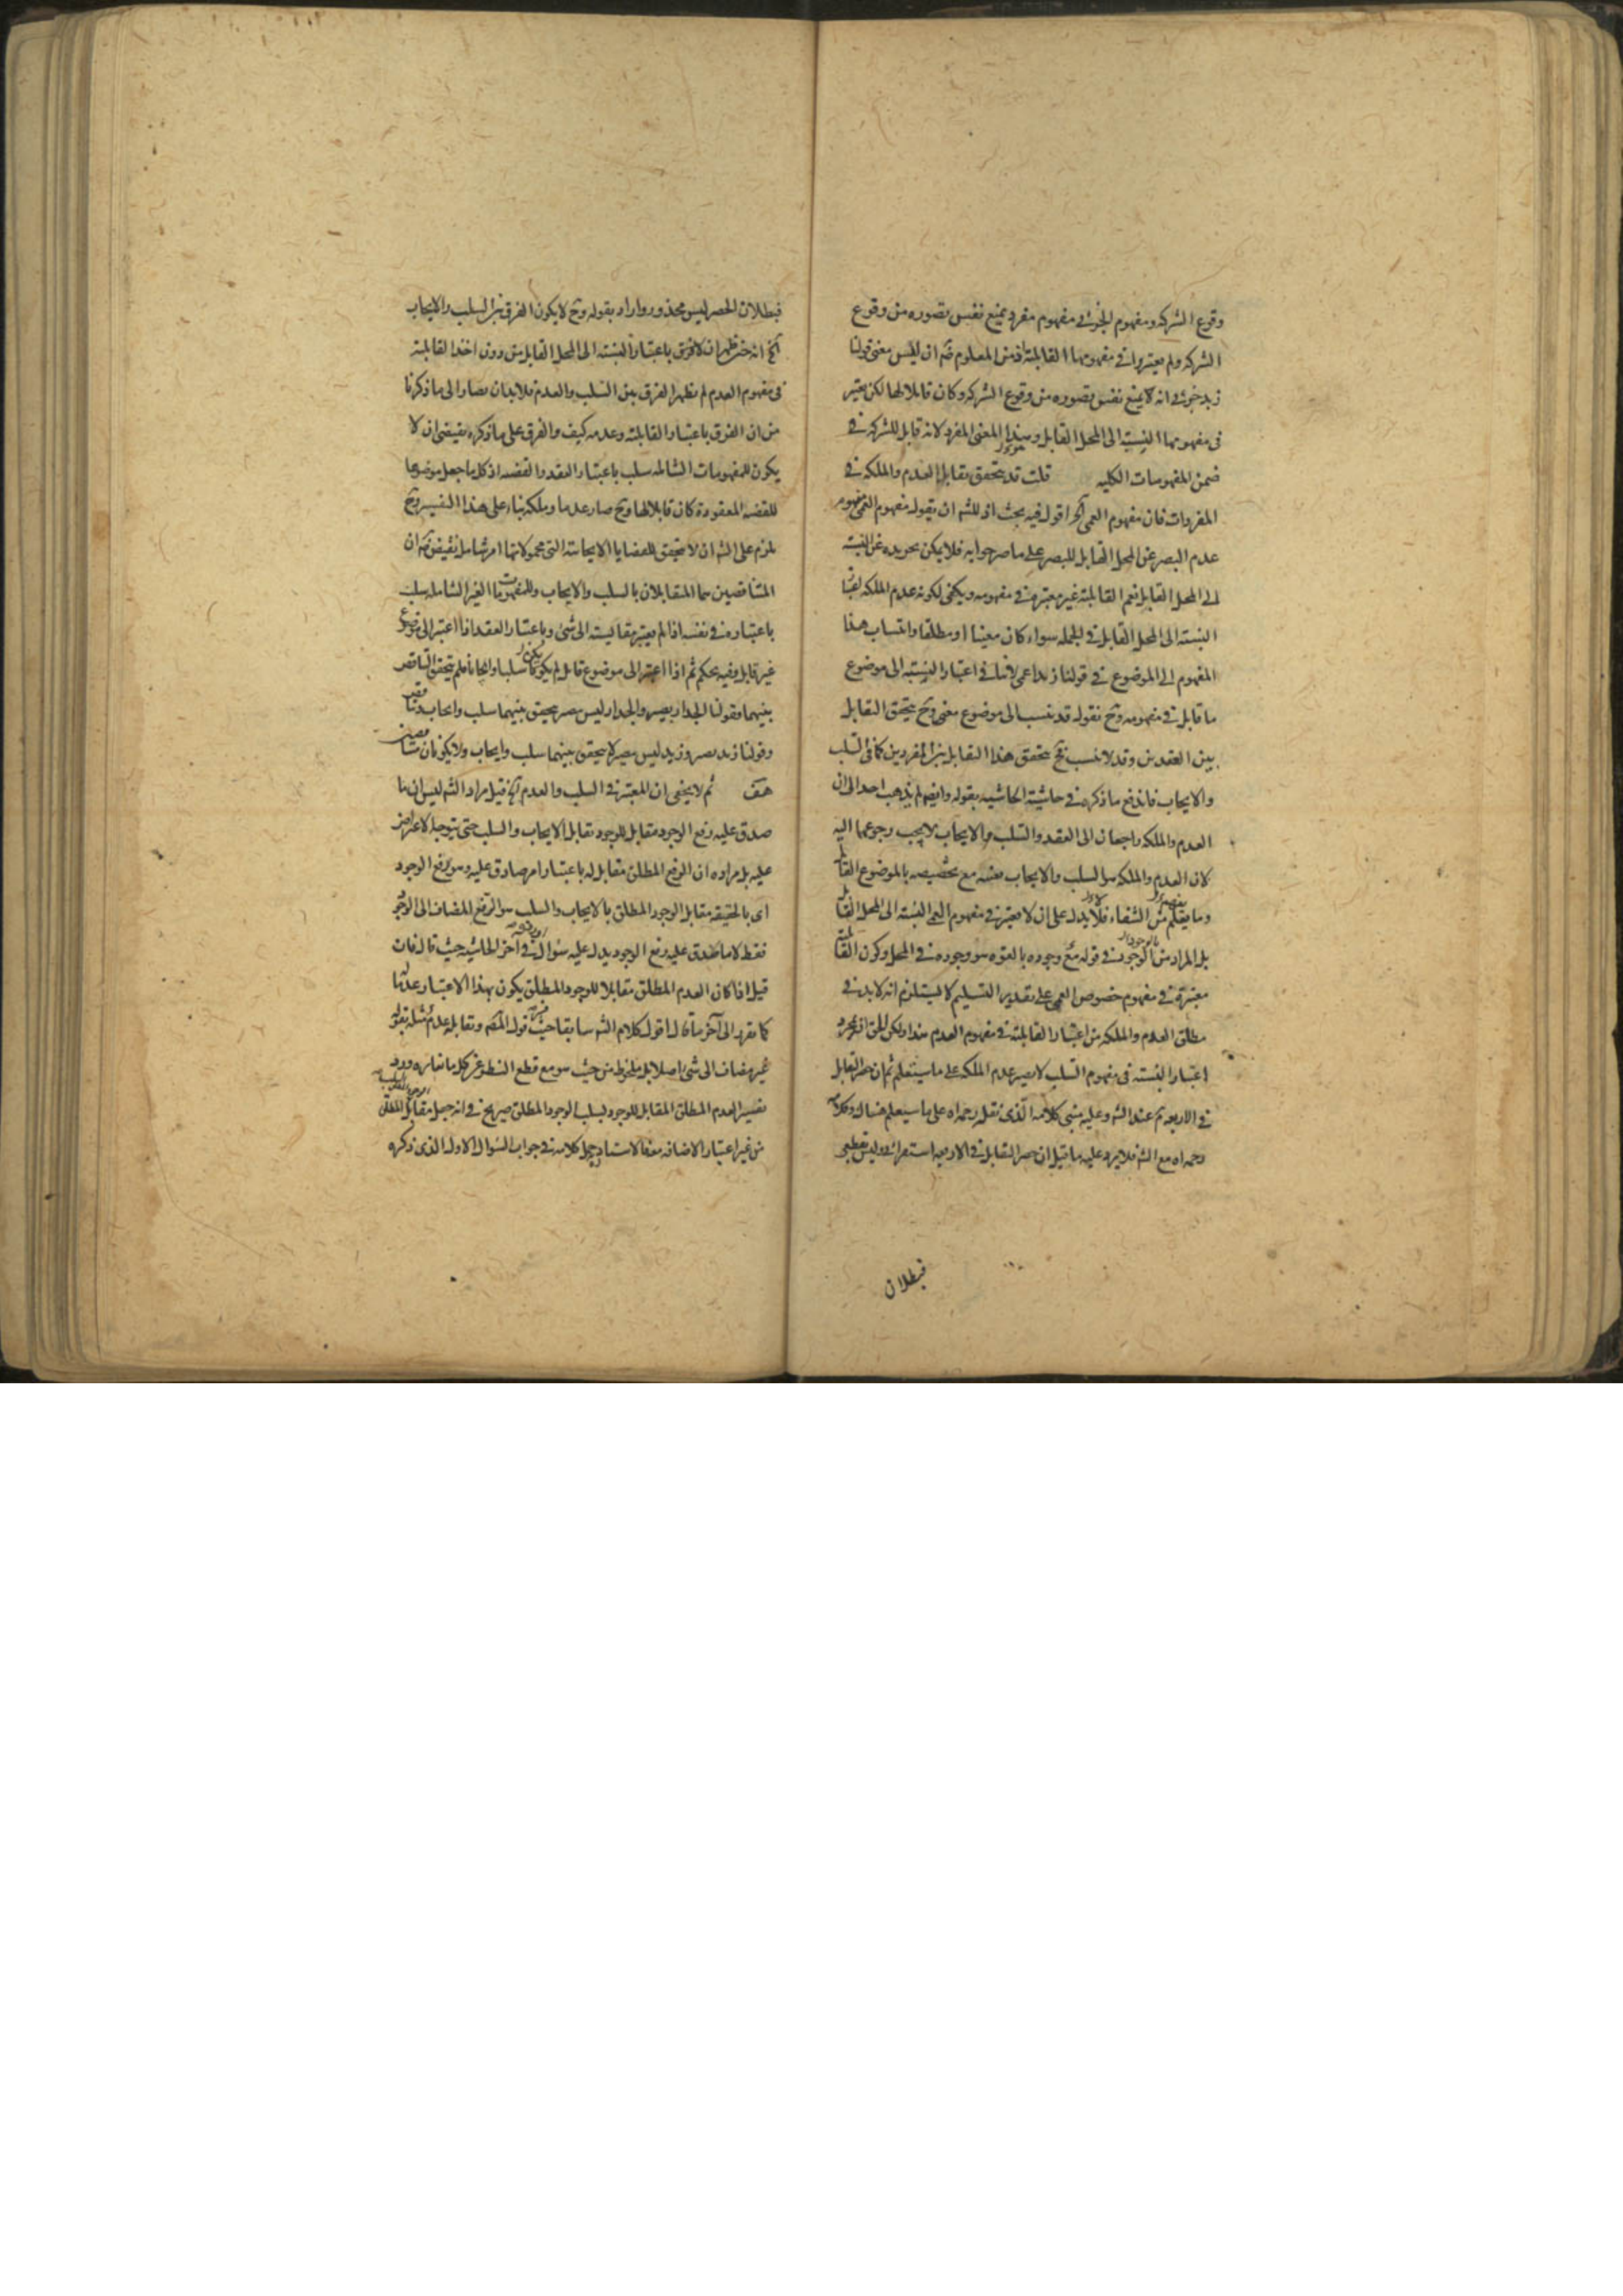 وقوع الشركه ومفهوم الجزئى مفهوم مفرد يمنع نفس تصوره من وقوع
الشركه ولم يعتبروا فى مفهومها القابلية اذ من المعلوم ان ليس معنى قولنا
زيد جزئى انه لا يمنع نفس تصوره من وقوع الشركه وكان قابلا لها لكن يعتبر
فى مفهومها النسبة الى المحل القابل وهذا المعنى المفرد لانه قابل للشركه فى
ضمن المفهومات الكليه قلت قد يتحقق تقابل العدم والملكه فى
المفردات فان مفهوم العمى الخ اقول فيه بحث اذ للشه ان يقول مفهوم العمى مفهوم
عدم البصر عن المحل القابل للبصر على ما صرحوا به فلا يمكن تجريده عن النسبة
الى المحل القابل نعم القابلية غير معتبرة فى مفهومه ويكفى لكونه عدم الملكه
النسبة الى المحل القابل فى الجمله سواء كان معينا او مطلقا وانتساب هذا
المفهوم الى الموضوع فى قولنا زيد اعمى لا ينافى اعتبار النسبة الى موضوع
ما قابل فى مفهومه وح نقول قد ينسب الى موضوع معين وح يتحقق التقابل
بين العقدين وقد لا ينسب فح يتحقق هذا التقابل بين المفردين كما فى السلب
والايجاب فاندفع ما ذكره فى حاشية الحاشيه بقوله وايضا لم يذهب احد الى ان
العدم والملكه راجعان الى العقد والسلب والايجاب لا يجب رجوعهما اليه
لان العدم والملكه هو السلب والايجاب بعينه مع تخصيصه بالموضوع القابل
وما نقلتم من الشفاء فلا يدل على ان لا يعتبر فى مفهوم العمى النسبة الى المحل القابل
بل المراد من الوجود فى قوله مع وجوده بالقوه هو وجوده فى المحل وكون القابلية
معتبرة فى مفهوم خصوص العمى على تقدير التسليم لا يستلزم انه لا بد فى
مطلق العدم والملكه من اعتبار القابلية فى مفهوم العدم هذا ولكن الحق ان مجرد
اعتبار النسبة فى مفهوم السلب لا يصير عدم الملكه على ما ستعلم ثم ان حصر التقابل
فى الاربعه تم عند الشه وعليه مبنى كلامه الذى نقل رحمه الله على ما سيعلم هناك وكلامه
رحمه الله مع الشه فلا يرد عليه ما قيل ان حصر التقابل فى الاربعه استقرائى وليس بقطعى
فبطلان
فبطلان الحصر ليس بمحذور واراد بقوله وح لا يكون الفرق بين السلب والايجاب
الخ انه حين ظهر ان لا فرق باعتبار النسبة الى المحل القابل من دون اخذ القابلية
فى مفهوم العدم لم يظهر الفرق بين السلب والعدم فلا بد ان يصار الى ما ذكرنا
من ان الفرق باعتبار القابلية وعدمه كيف والفرق على ما ذكره يقتضى ان لا
يكون للمفهومات الشامله سلب باعتبار العقد والقضيه اذ كل ما جعل موضوعا
للقضيه المعقودة كان قابلا لها وح صار عدما وملكه بناء على هذا التفسير وح
يلزم على الشه ان لا يتحقق للقضايا الايجابيه التى محمولاتها امر شامل نقيض ان
المتناقضين هما المتقابلان بالسلب والايجاب وللمفهومات الغير الشامله سلب
باعتباره فى نفسه اذا لم يعتبر مقايسته الى شئ وباعتبار العقد اذا اعتبر الى موضوع
غير قابل وفيه تحكم ثم اذا اعتبر الى موضوع قابل لم يكونا سلبا وايجابا فلم يتحقق التناقض
بينهما فقولنا الجدار بصير والجدار ليس ببصير يتحقق بينهما سلب وايجاب وتناقض
وقولنا زيد بصير وزيد ليس ببصير لا يتحقق بينهما سلب وايجاب ولا يكونان متناقضين
هف ثم لا يخفى ان المعتبر فى السلب والعدم الخ قيل مراد الشه ليس ان ما
صدق عليه رفع الوجود مقابل للوجود تقابل الايجاب والسلب حتى يتوجه الاعتراض
عليه بل مراده ان الرفع المطلق مقابل له باعتبار امر صادق عليه وهو رفع الوجود
اى بالحقيقه مقابل الوجود المطلق بالايجاب والسلب هو الرفع المضاف الى الوجود
فقط لا ما صدق عليه رفع الوجود يدل عليه سؤال فى آخر الحاشيه حيث قال فان
قيل اذا كان العدم المطلق مقابلا للوجود المطلق يكون بهذا الاعتبار عدما
كما تقرر الى آخر ما قال اقول كلام الشه سابقا حيث فسر قول المص وتقابله عدم مثله بقوله
غير مضاف الى شئ اصلا بل ملحوظ من حيث هو مع قطع النظر عن كل ما تغايره وورد
تفسير العدم المطلق المقابل للوجود بسلب الوجود المطلق صريح فى انه جعل مقابل المطلق
من غير اعتبار الاضافه معه فالاستاد حمل كلامه فى جواب السؤال الاول الذى ذكره